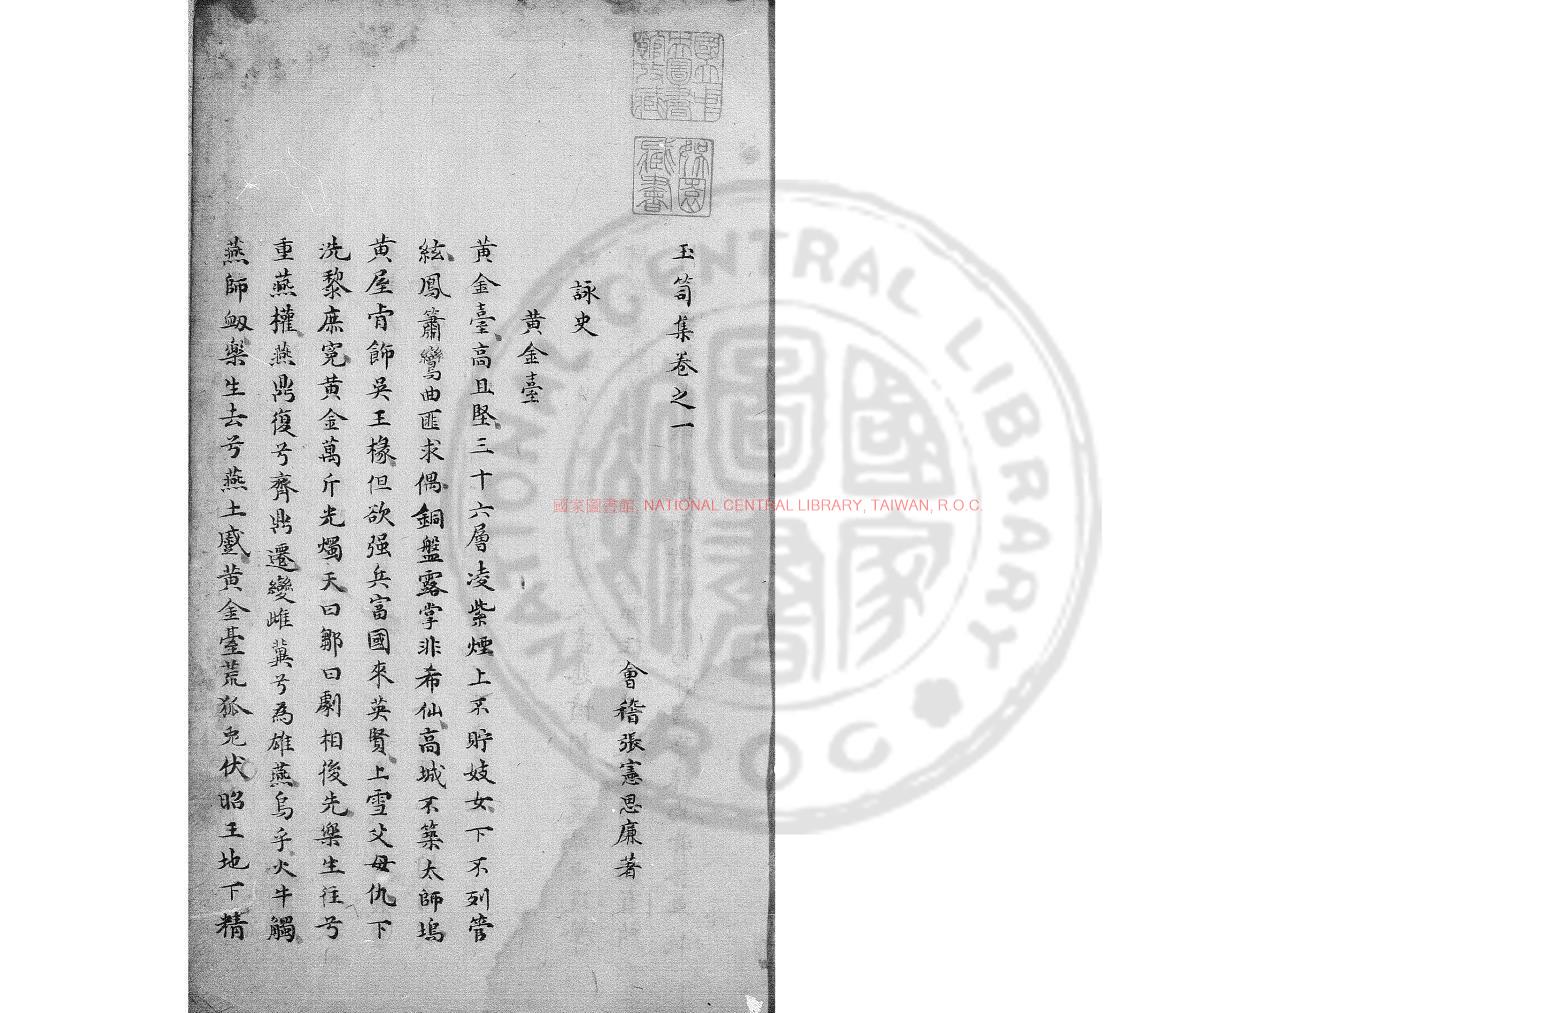 玉笥集卷之一
會稽張憲思廉著
詠史
黄金臺
黃金臺高且堅三十六層凌紫煙上不貯妓女下不列管
絃鳳簫鸞曲匪求偶銅盤露掌非希仙高城不築太師塢
黄屋肯飾吳王椽但欲强兵富國來英賢上雪父母仇下
洗黎庶寃黄金萬斤光燭天曰鄒曰劇相後先樂生往兮
重燕權燕鼎復兮齊鼎遷變雌冀兮為雄燕烏乎火牛觸
燕師衂樂生去兮燕土蹙黄金臺荒狐兎伏昭王地下精
國家圖書館, NATIONAL CENTRAL LIBRARY, TAIWAN, R.O.C.
NATIONAL CENTRAL LIBRARY
ROC
國家圖書